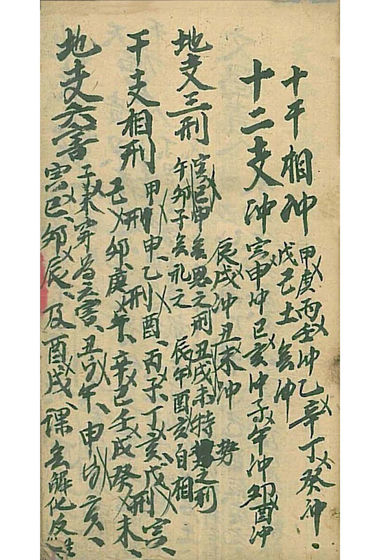 十干相冲 甲庚丙壬冲乙辛丁癸冲
戊己土無冲
十二支冲 寅申冲巳亥冲子午冲卯酉冲
辰戌冲丑未冲
地支三刑 寅巳申無恩之刑丑戌未特勢之刑 勢
午卯子無礼之 辰午酉亥自相
干支相刑 甲刑申、乙刑酉、丙子、丁亥、戊刑寅、
己卯、庚午、辛巳、壬戌、癸未、
地支六害 子未穿為六害、丑午、申亥、
寅巳、卯辰、及酉戌、無解化反